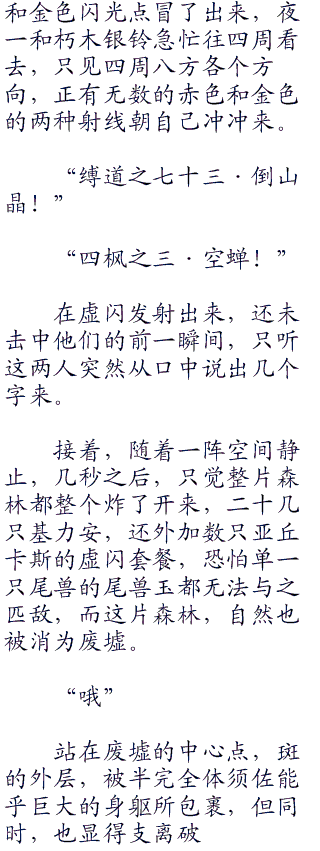 和金色闪光点冒了出来，夜
一和朽木银铃急忙往四周看
去，只见四周八方各个方
向，正有无数的赤色和金色
的两种射线朝自己冲冲来。
“缚道之七十三·倒山
晶！”
“四枫之三·空蝉！”
在虚闪发射出来，还未
击中他们的前一瞬间，只听
这两人突然从口中说出几个
字来。
接着，随着一阵空间静
止，几秒之后，只觉整片森
林都整个炸了开来，二十几
只基力安，还外加数只亚丘
卡斯的虚闪套餐，恐怕单一
只尾兽的尾兽玉都无法与之
匹敌，而这片森林，自然也
被消为废墟。
“哦”
站在废墟的中心点，斑
的外层，被半完全体须佐能
乎巨大的身躯所包裹，但同
时，也显得支离破